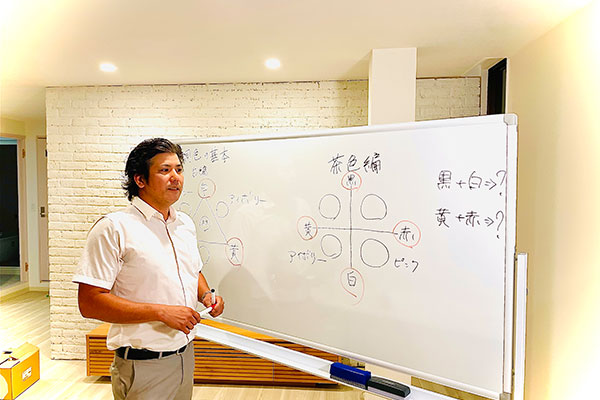 色の基本
アイボリー
黄
茶色編
黒
黄
赤
アイボリー
ピンク
白
黒+白⇒?
黄+赤⇒?